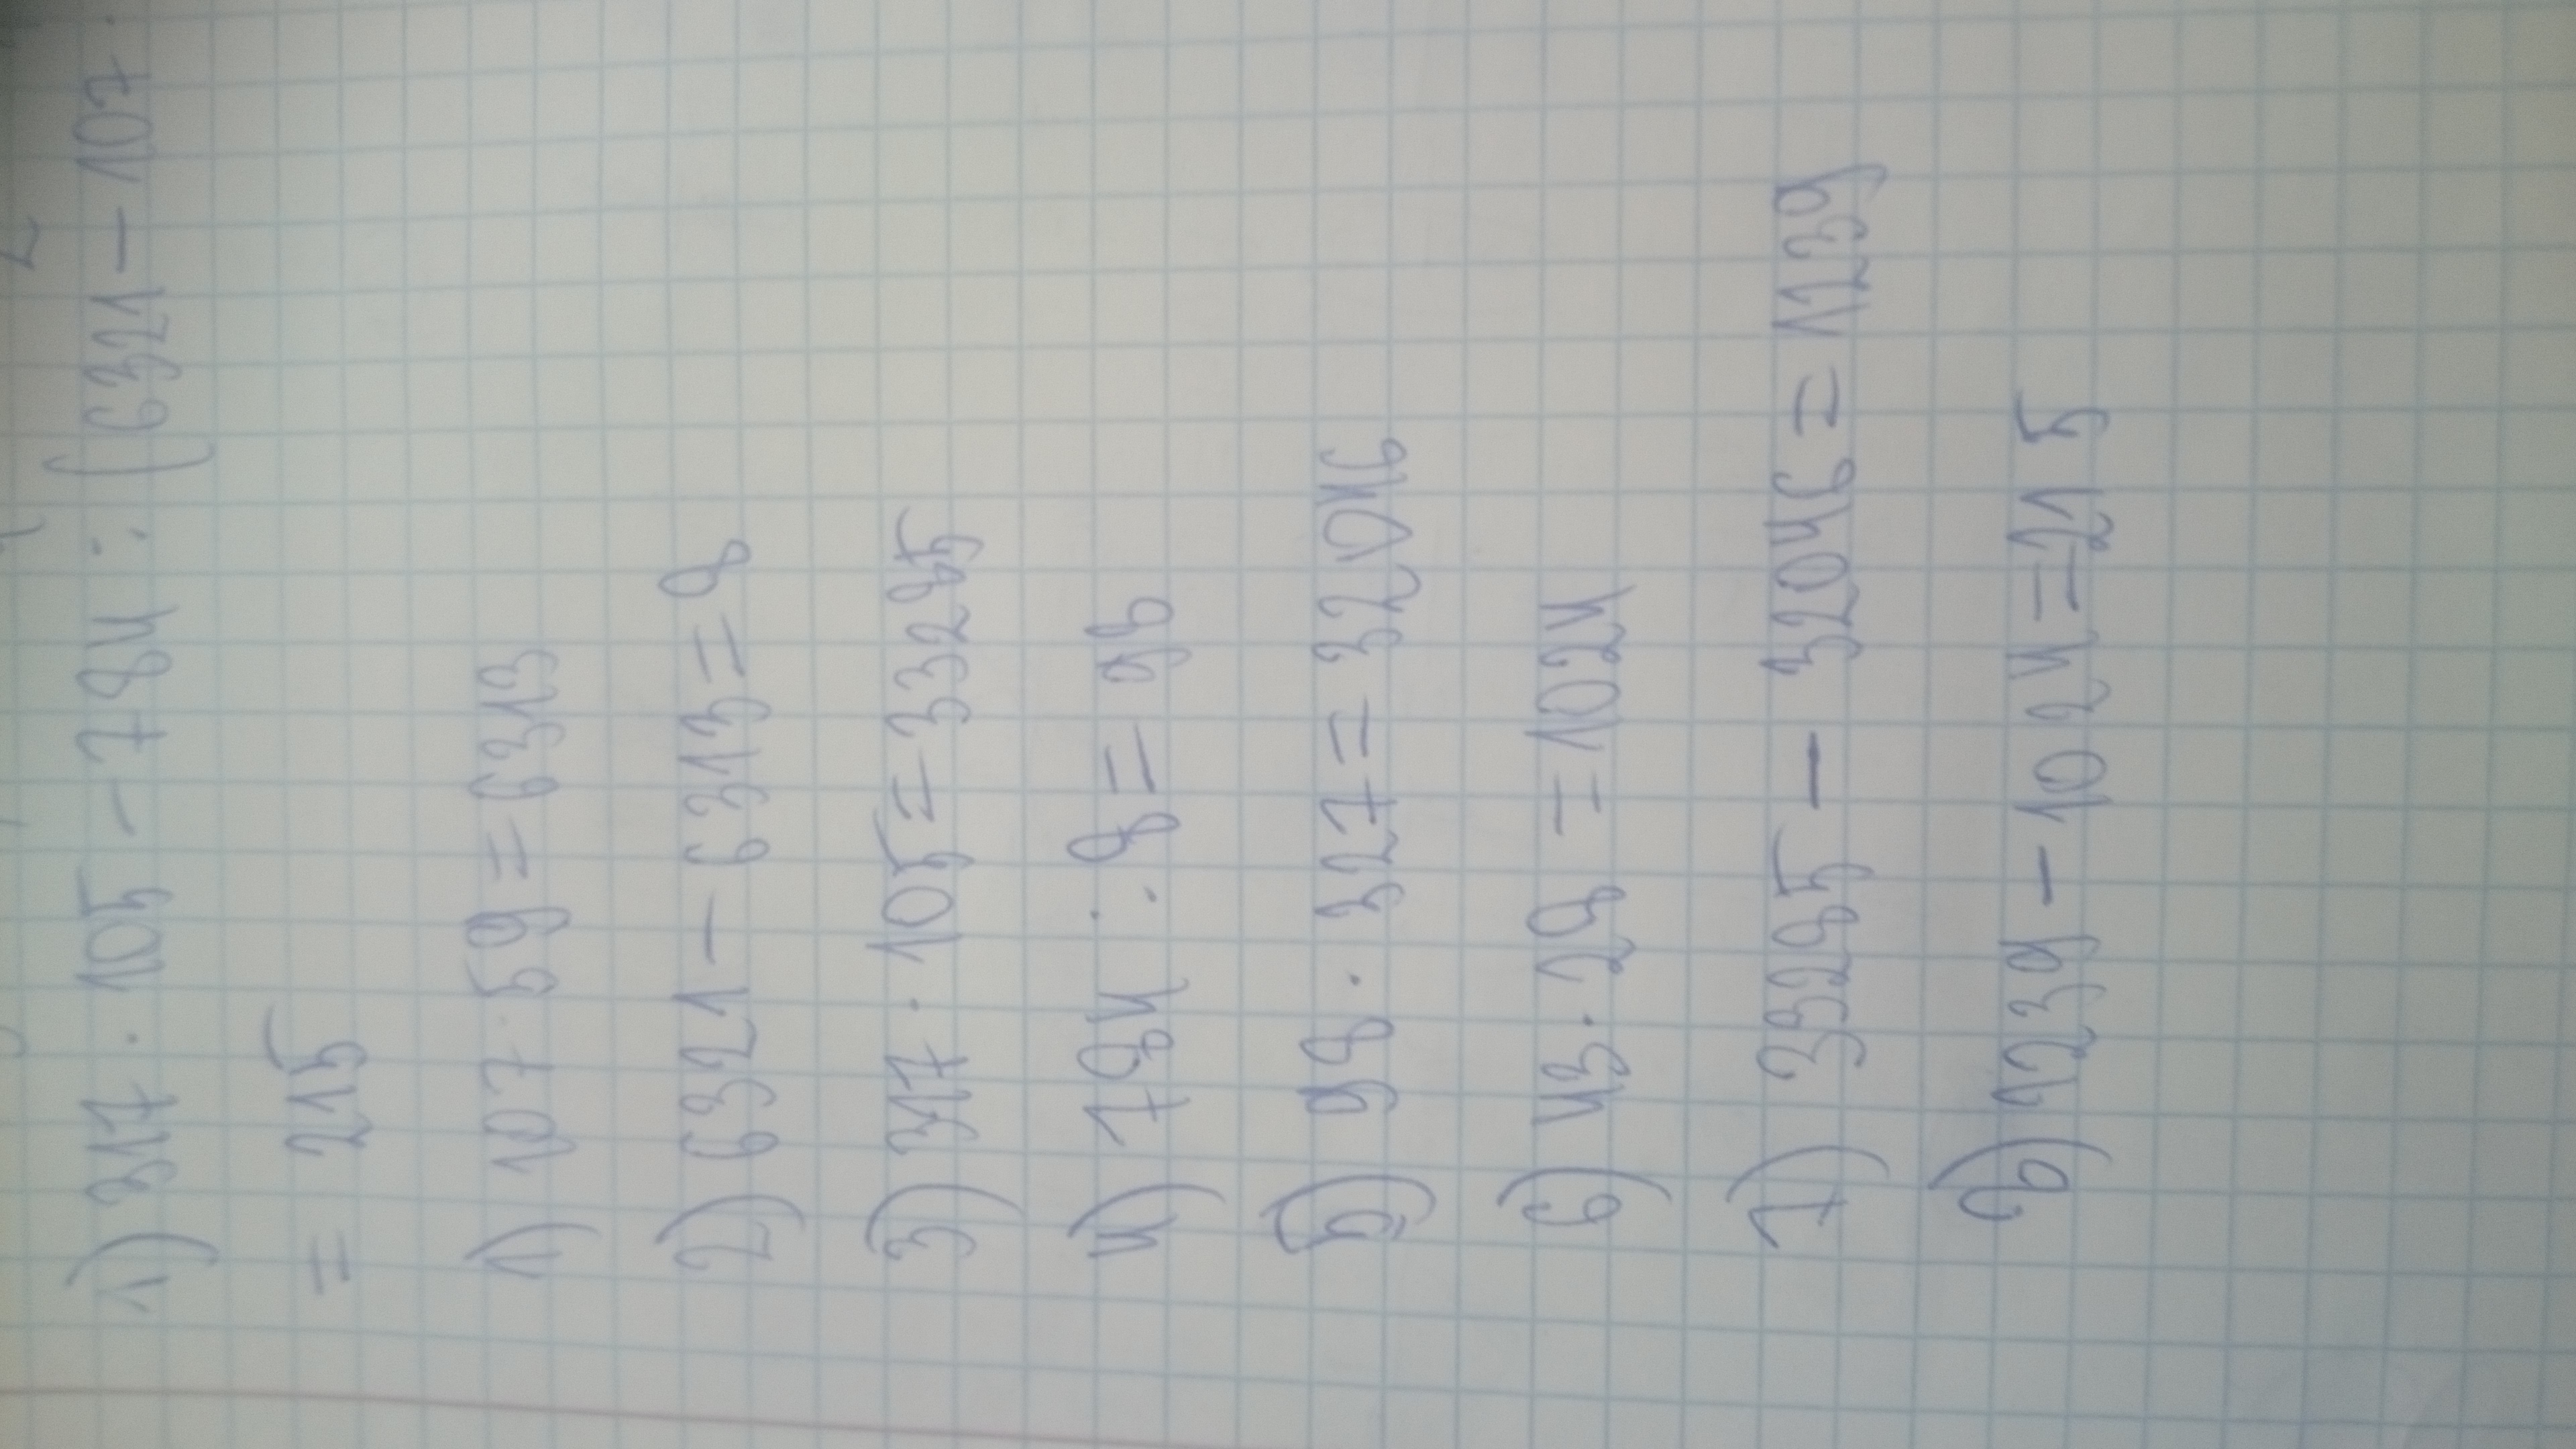 1) 317 · 105 - 784 : (6321 - 107 ·
= 215
1) 107 · 59 = 6313
2) 6321 - 6313 = 8
3) 317 · 105 = 33285
4) 784 : 8 = 98
5) 98 · 327 = 32046
6) 43 · 28 = 1024
7) 33285 - 32046 = 11239
8) 1239 - 1024 = 215